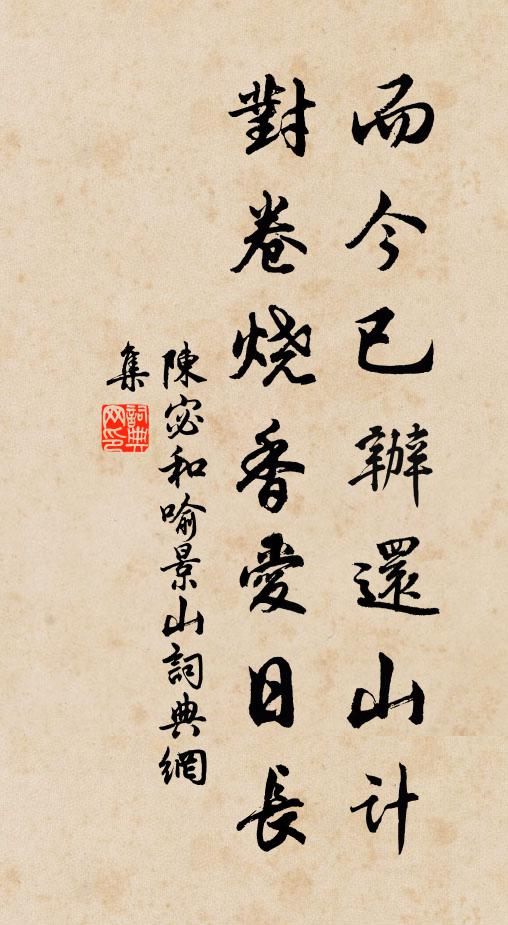 而今已辦還山計
對卷燒香愛日長
陳宓和喻景山詞典網
集
詞典
网印